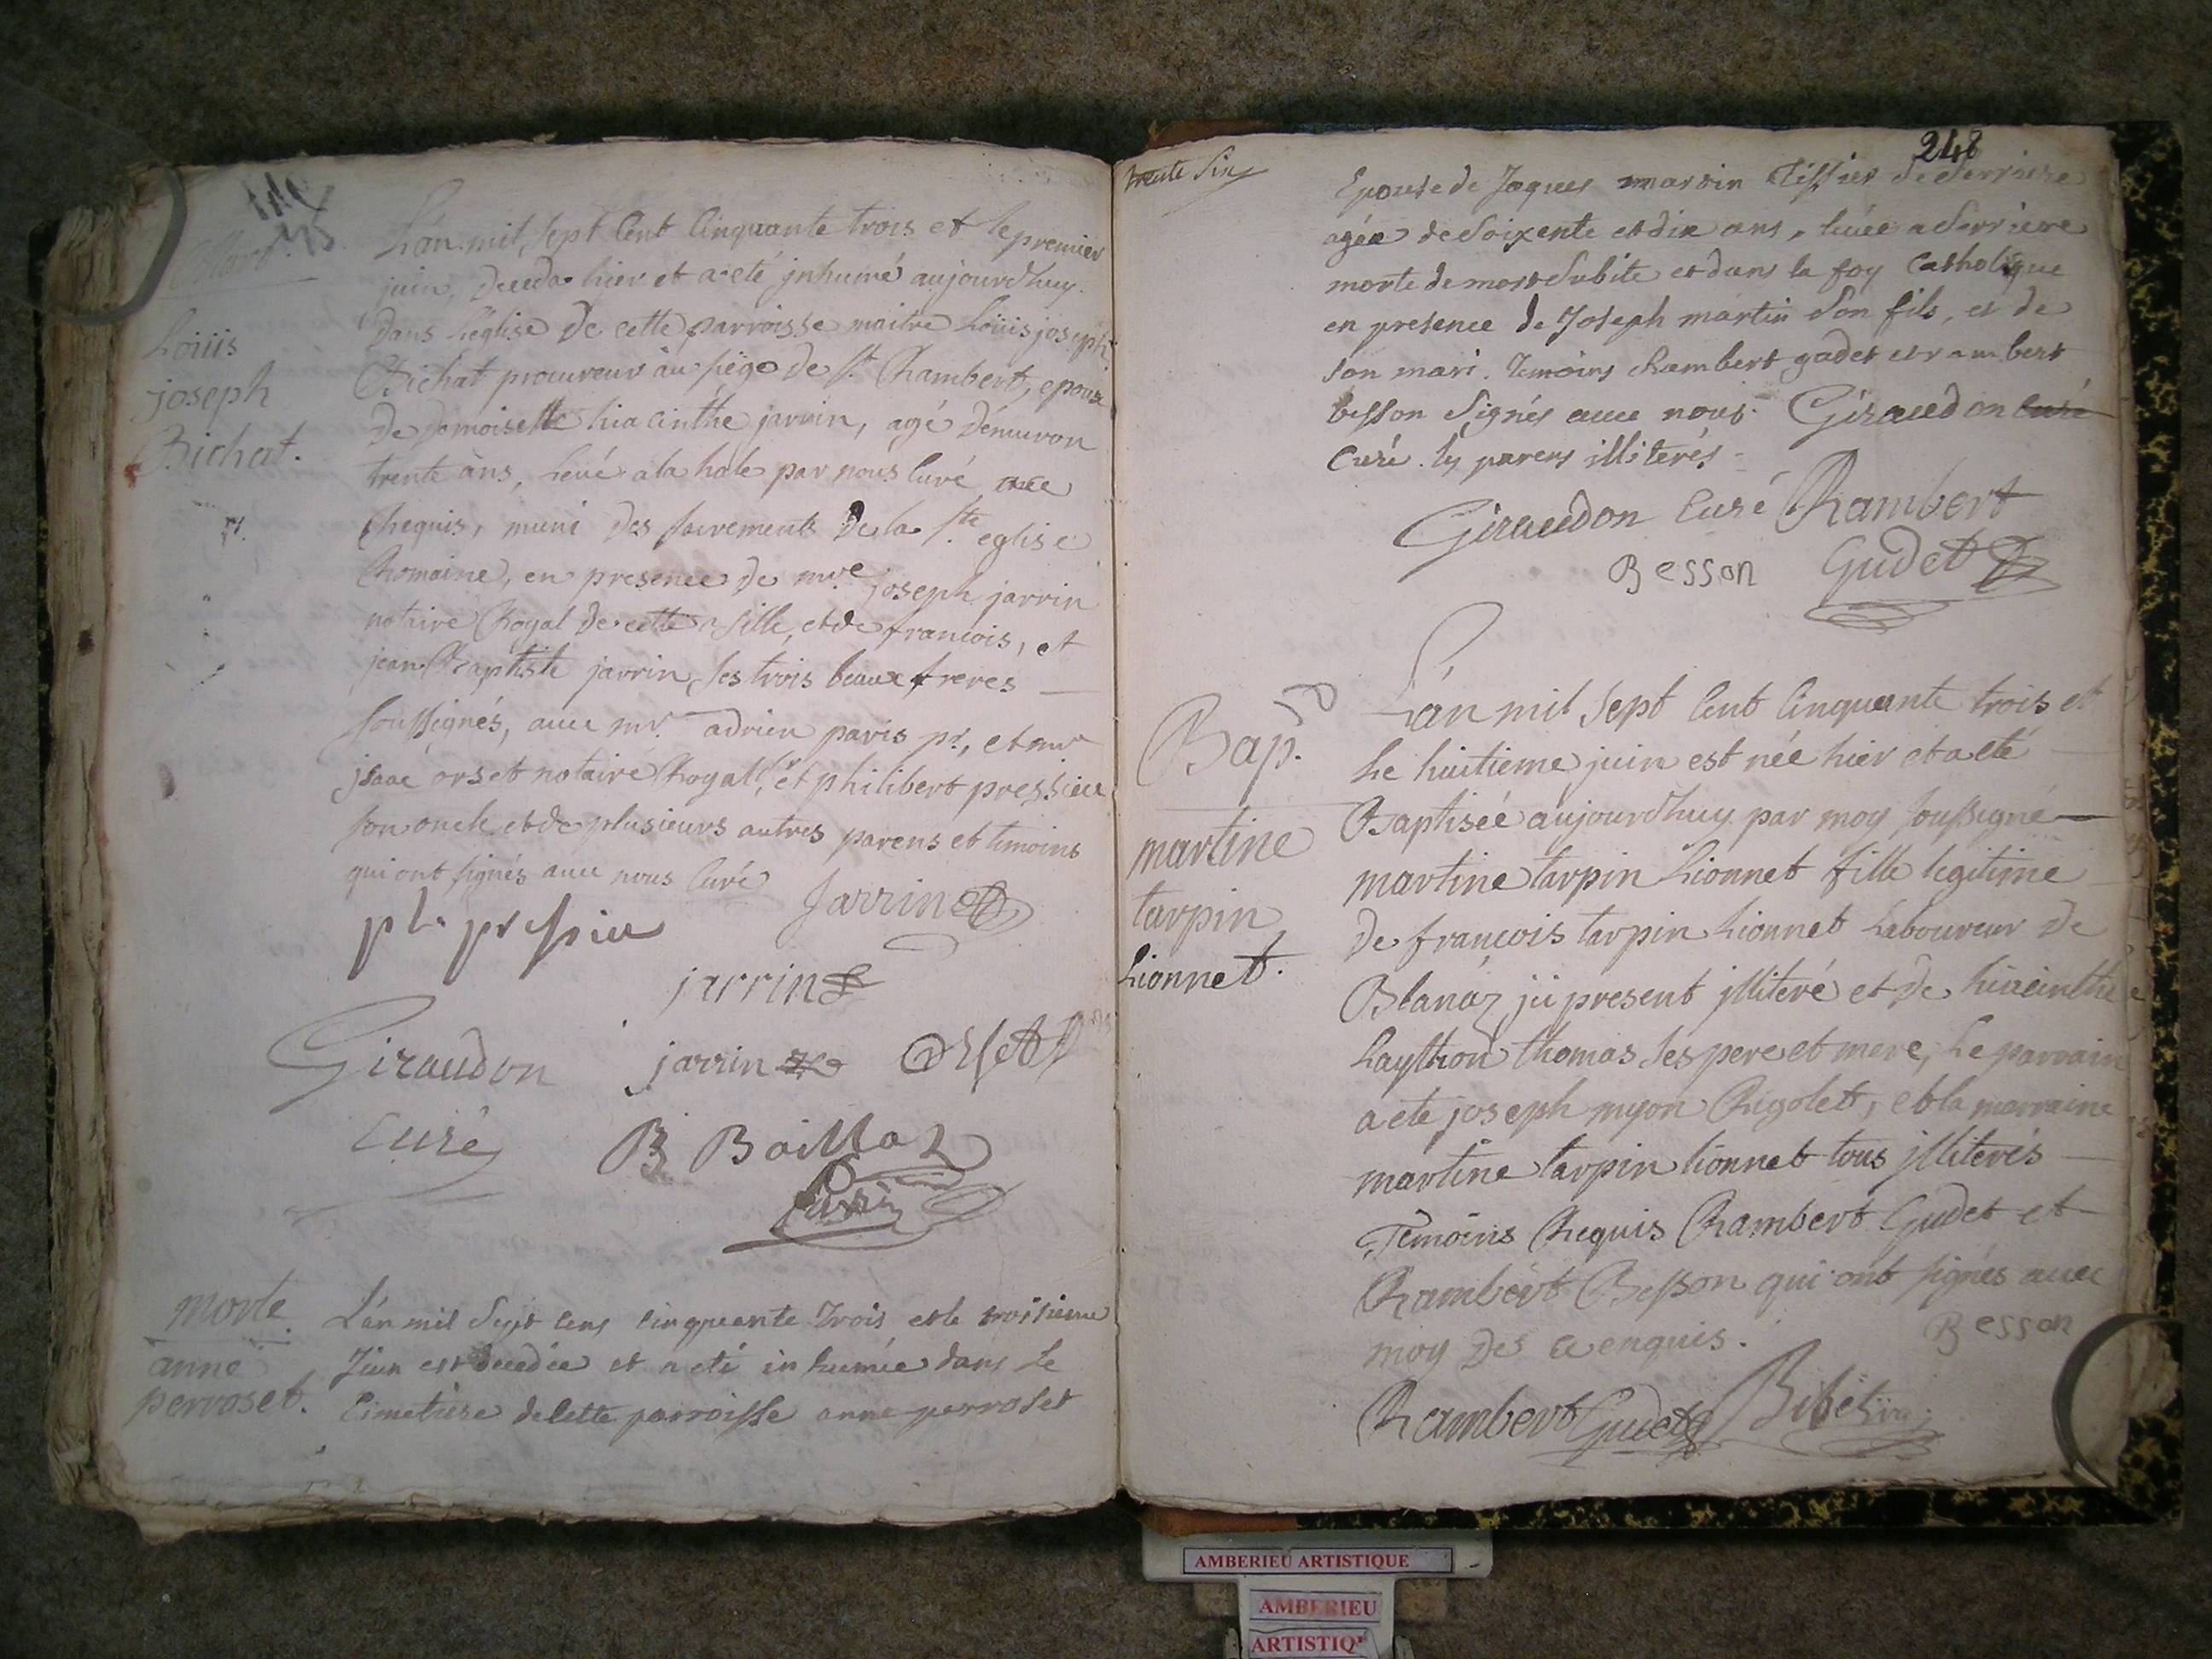 Mort.
Loüis
joseph
Bichat.
L'án mil, sept Cent Cinquante trois et le premier
juin, Deceda hier et a eté jnhumé aujourdhuy
dans L'église de cette parroisse maitre Loüis joseph
Bichat procureur au siége de st. Rambert, epoux
de demoiselle hiacinthe jarrin, agé D'énuiron
trente áns, Leué a la hale par nous Curé, a ce
Requis, muni des sacrements de la ste. eglise
Romaine, en presence de mre. joseph jarrin
notaire Royal de cette ville, et de francois, et
jean Baptiste jarrin, ses trois beaux freres
soussignés, auec mr. adrien paris pr., et mre
jsaac orset notaire Royal, et philibert pressieu
son oncle, et de plusieurs autres parens et temoins
qui ont signés auec nous Curé
Jarrin
pht pressieu
jarrin
Giraudon
Curé
jarrin
Orset
B Baillaz
paris
morte.
anne
perroset.
L'an mil Sept cens cinquante Trois et le troisieme
Juin est decedée et a eté inhumée dans le
Cimetiere de Cette parroisse anne perroset
trente six
248
Epouse de Jaques martin Tissier de Serriere
agée de Soixente et dix ans, leuée a Serriere
morte de mort Subite et dans la foy Catholique
en presence de Joseph martin Son fils, et de
son mari. Temoins Rambert gudet et rambert
besson Signés auec nous. Giraudon curé
Curé. les parens illiterés
Giraudon Curé
Rambert
Gudet
Besson
Bap.
martine
tarpin
Lionnet.
L'án mil Sept Cent Cinquante trois et
Le huitieme juin est née hier et a eté
Baptisée aujourdhuy par moy soussigné
martine tarpin Lionnet fille legitime
de françois tarpin Lionnet Laboureur de
Blanaz ici present jlliteré et de hiacinthe
Laython thomas ses pere et mere, Le parrain
a eté joseph myon Rigolet, et la marraine
martine tarpin lionnet tous jlliterés
Témoins Requis Rambert Gudet et
Rambert Besson qui ont signés auec
moy De ce enquis.
Besson
Rambert Gudet
AMBERIEU ARTISTIQUE
AMBERIEU
ARTISTIQ